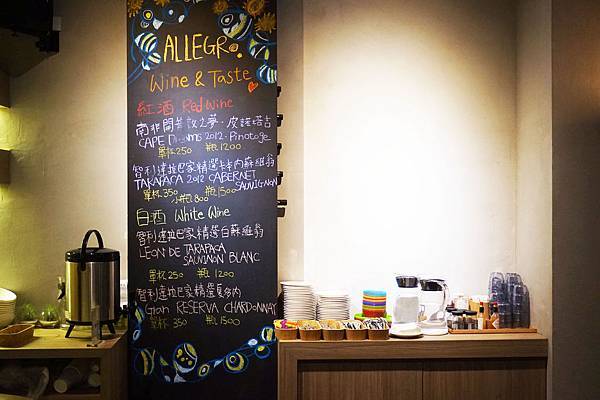 ALLEGRO.
Wine & Taste
紅酒 Red Wine
南非開普敦之夢·皮諾塔吉
CAPE Dreams 2012 · Pinotage
單杯250 瓶1200
智利達拉巴家精選卡本內蘇維翁
TARAPACA 2012 CABERNET
SAUVIGNON
單杯350 瓶1500
小瓶800
白酒 White Wine
智利達拉巴家精選白蘇維翁
LEON DE TARAPACA
SAUVINON BLANC
單杯250 瓶1200
智利達拉巴家精選夏多內
Gran RESERVA CHARDONNAY
單杯350 瓶1500